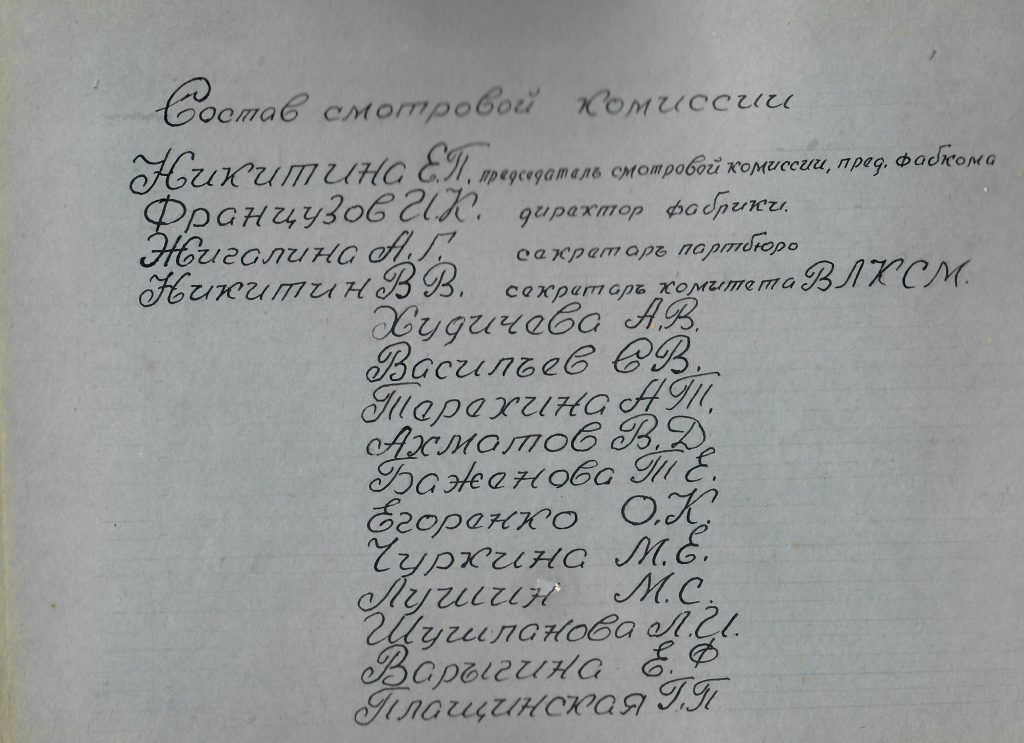 Состав смотровой комиссии
Никитина Е.П. председатель смотровой комиссии, пред. фабкома
Французов И.К. директор фабрики.
Жигалина А.Г. секретарь партбюро
Никитин В В. секретарь комитета ВЛКСМ.
Худичева А.В.
Васильев С В.
Терехина А Т.
Ахматов В. Д.
Баженова Т Е.
Егоренко О.К.
Чуркина М.Е.
Лушин М.С.
Шушпанова Л.И.
Варыгина Е. Ф
Плащинская Г.П